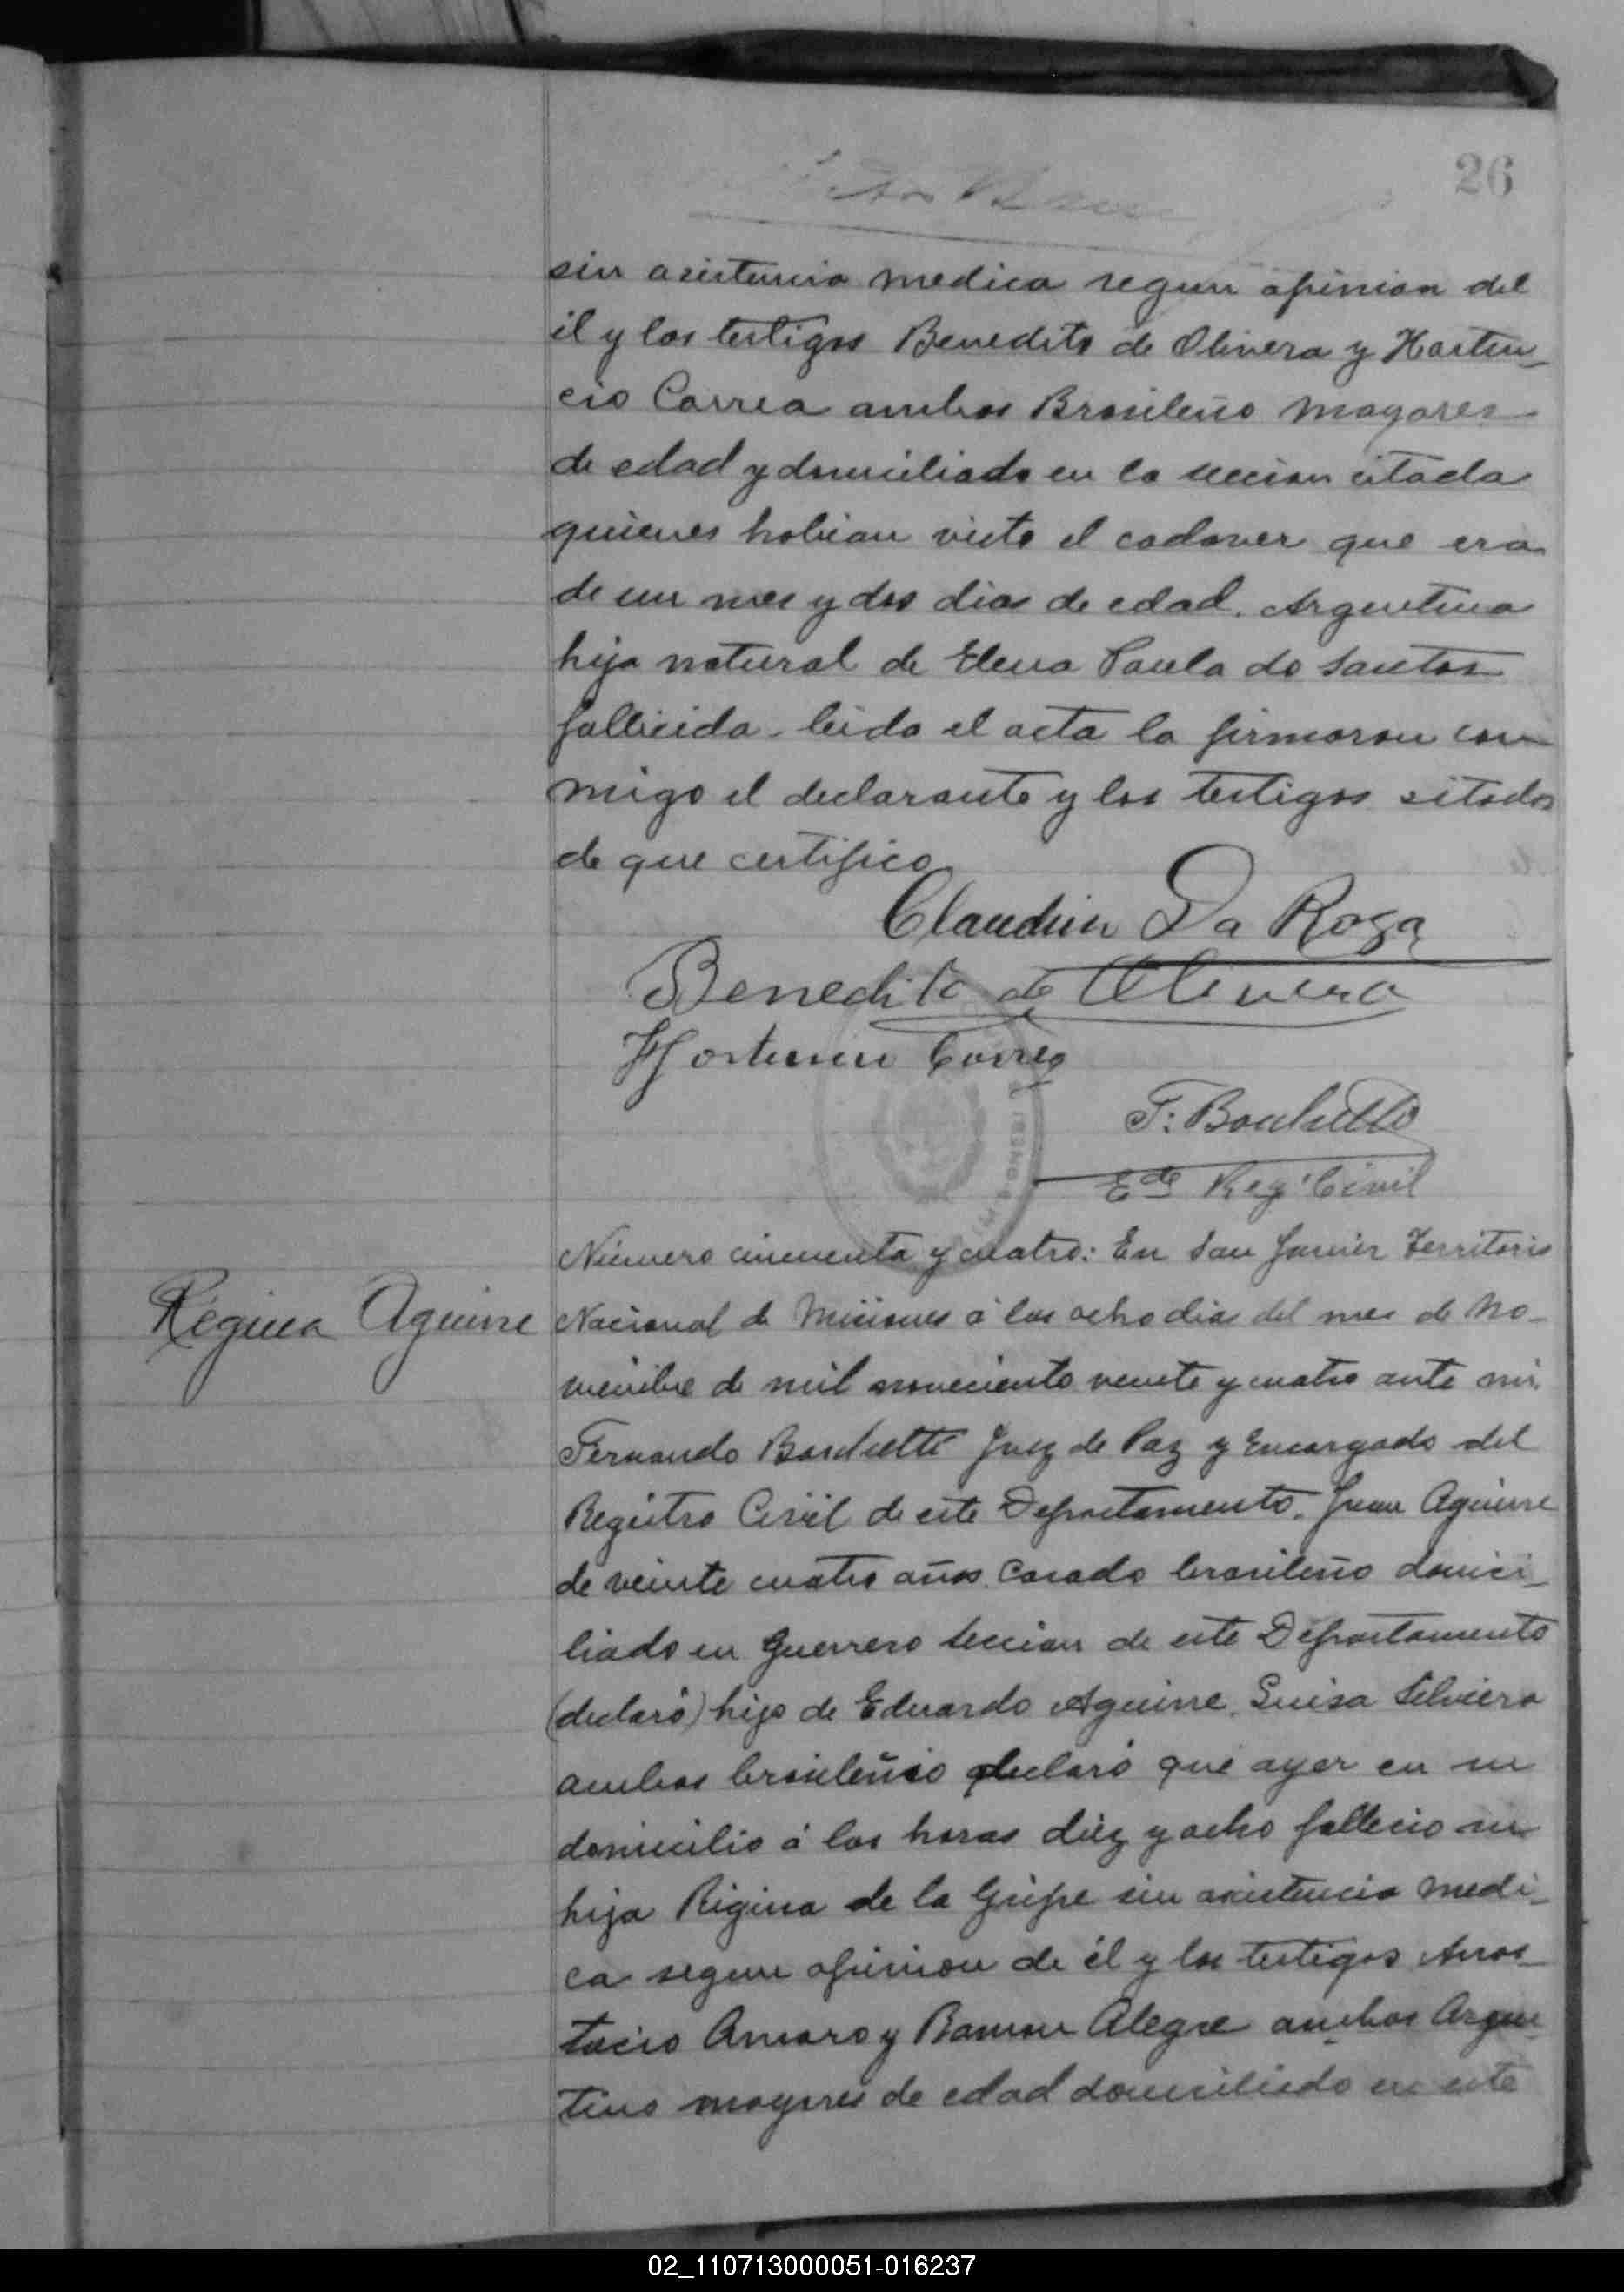 26
sin asistencia medica segun opinion del
él y los testigos Benedito de Olivera y Horten-
cio Correa ambos Brasileño mayores
de edad y domiciliado en la seccion citada
quienes habian visto el cadaver que era
de un mes y dos dias de edad. Argentina
hija natural de Elena Paula do Santos
fallicida. leida el acta la firmaron con
migo el declarante y los testigos sitados
de que certifico
Claudin Da Rosa
Benedito de Olivera
Hortencio Correa
F. Bordhetti
Edo Reg. Civil
Número cincuenta y cuatro: En San Javier Territorio
Regina Aguirre
Nacional de Misiones á los ocho dias del mes de No-
viembre de mil noveciento veinte y cuatro ante mi
Fernando Juez de Paz y Encargado del
Registro Civil de este Departamento. Juan Aguirre
de veinte cuatro años. Casado brasileño domici-
liado en Guerrero Seccion de este Departamento
(declaró) hijo de Eduardo Aguirre. Luisa Silviera
ambos brasileñio declaró que ayer en su
domicilio á las horas diez y ocho fallecio su
hija Rigina de la Gripe sin asistencia medi-
ca segun opinion de él y los testigos Anas-
tacio Amaro y Ramon Alegre ambos Argen
tino mayores de edad domiciliado en este